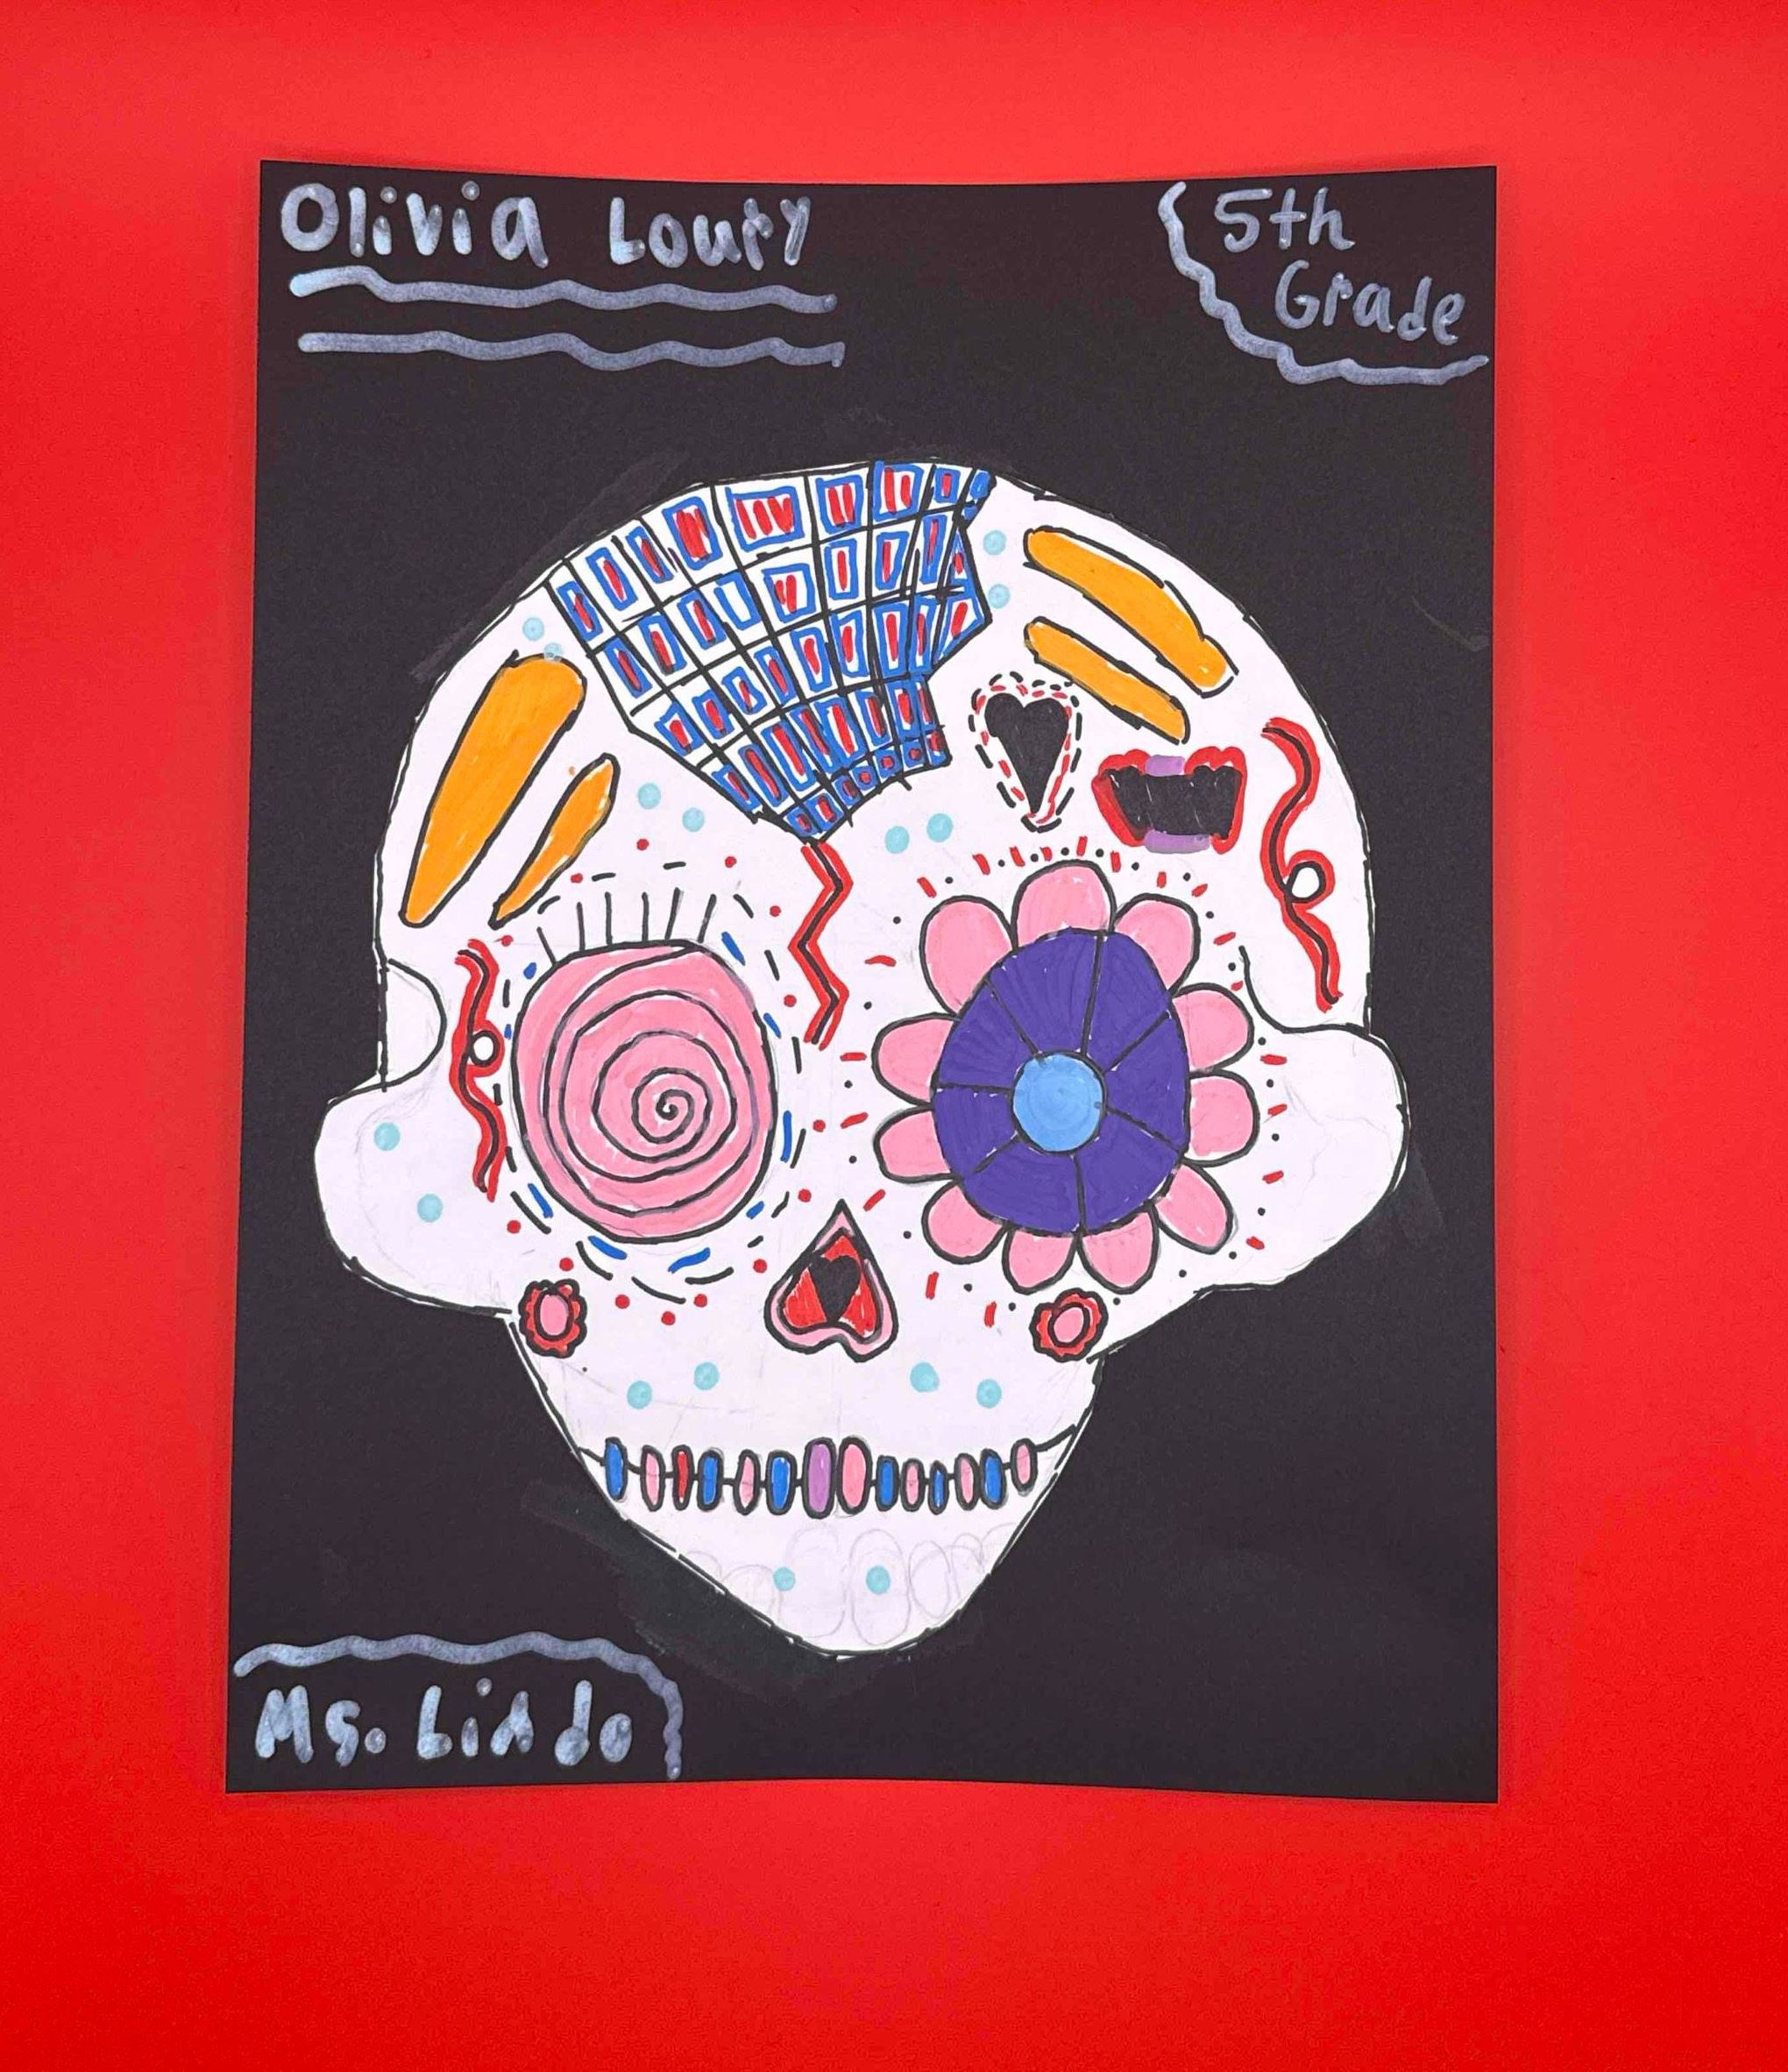 Olivia Loury
5th
Grade
Ms. Lindo